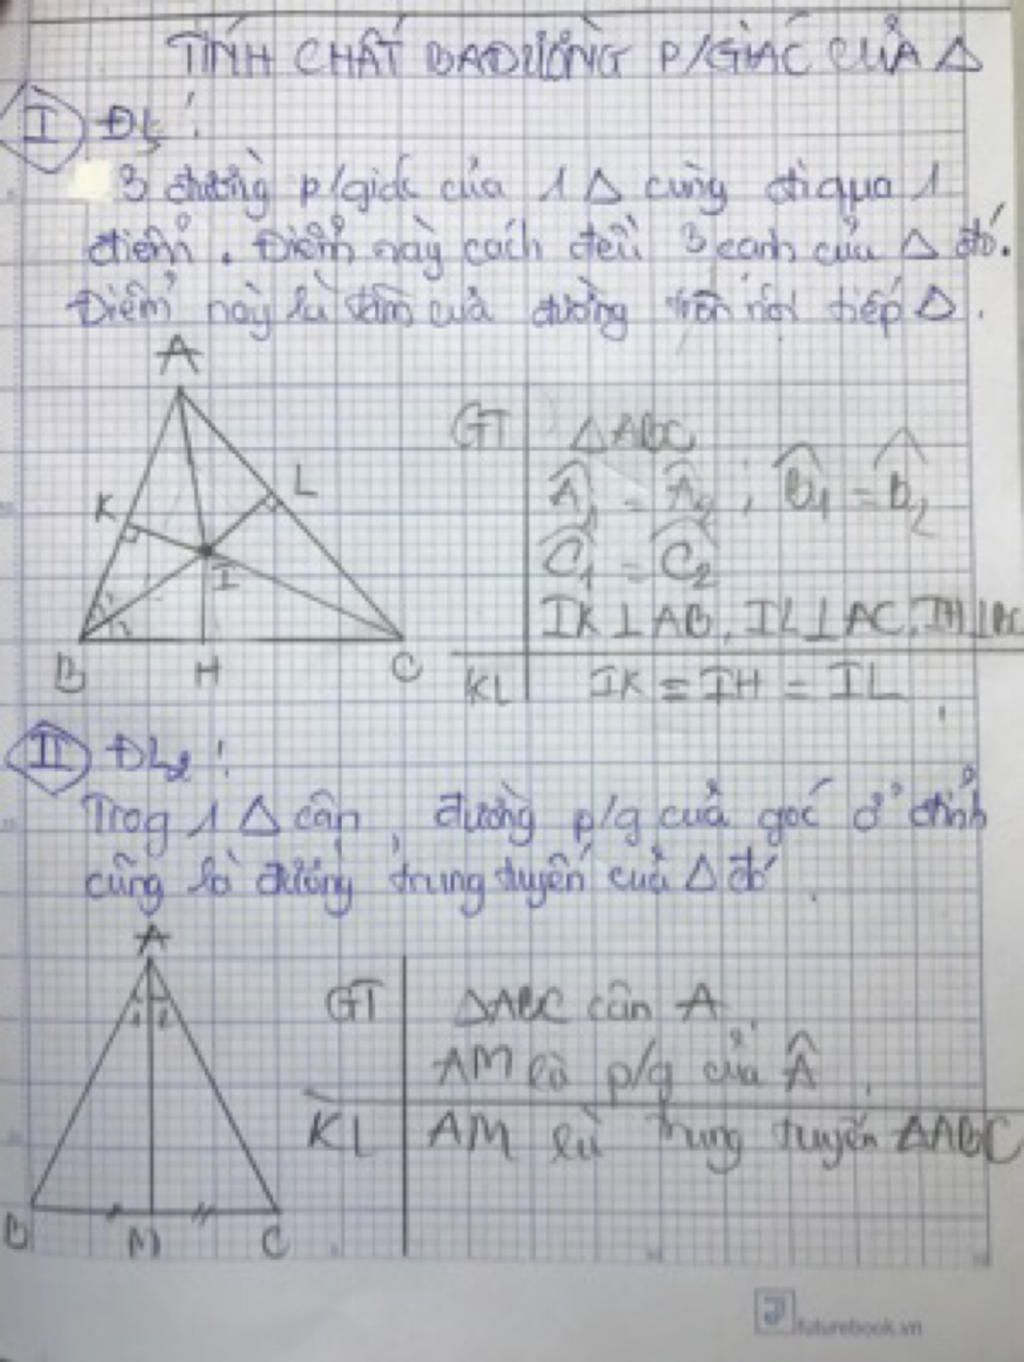 TÍNH CHẤT BA ĐƯỜNG P/GIÁC CỦA Δ
I ĐL!
3 đường p/giác của 1 Δ cùng đi qua 1
điểm. Điểm này cách đều 3 cạnh của Δ đó.
Điểm này là tâm của đường tròn nội tiếp Δ.
A
K
L
I
1
2
B
H
C
GT
ΔABC
Â1 = Â2 ; B̂1 = B̂2
Ĉ1 = Ĉ2
IK ⊥ AB, IL ⊥ AC, IH ⊥ BC
KL
IK = IH = IL
II ĐL2!
Trog 1 Δ cân, đường p/g của góc ở đỉnh
cũng là đường trung tuyến của Δ đó.
A
1 2
B
M
C
GT
ΔABC cân A
AM là p/g của Â.
KL
AM là trung tuyến ΔABC
futurebook.vn